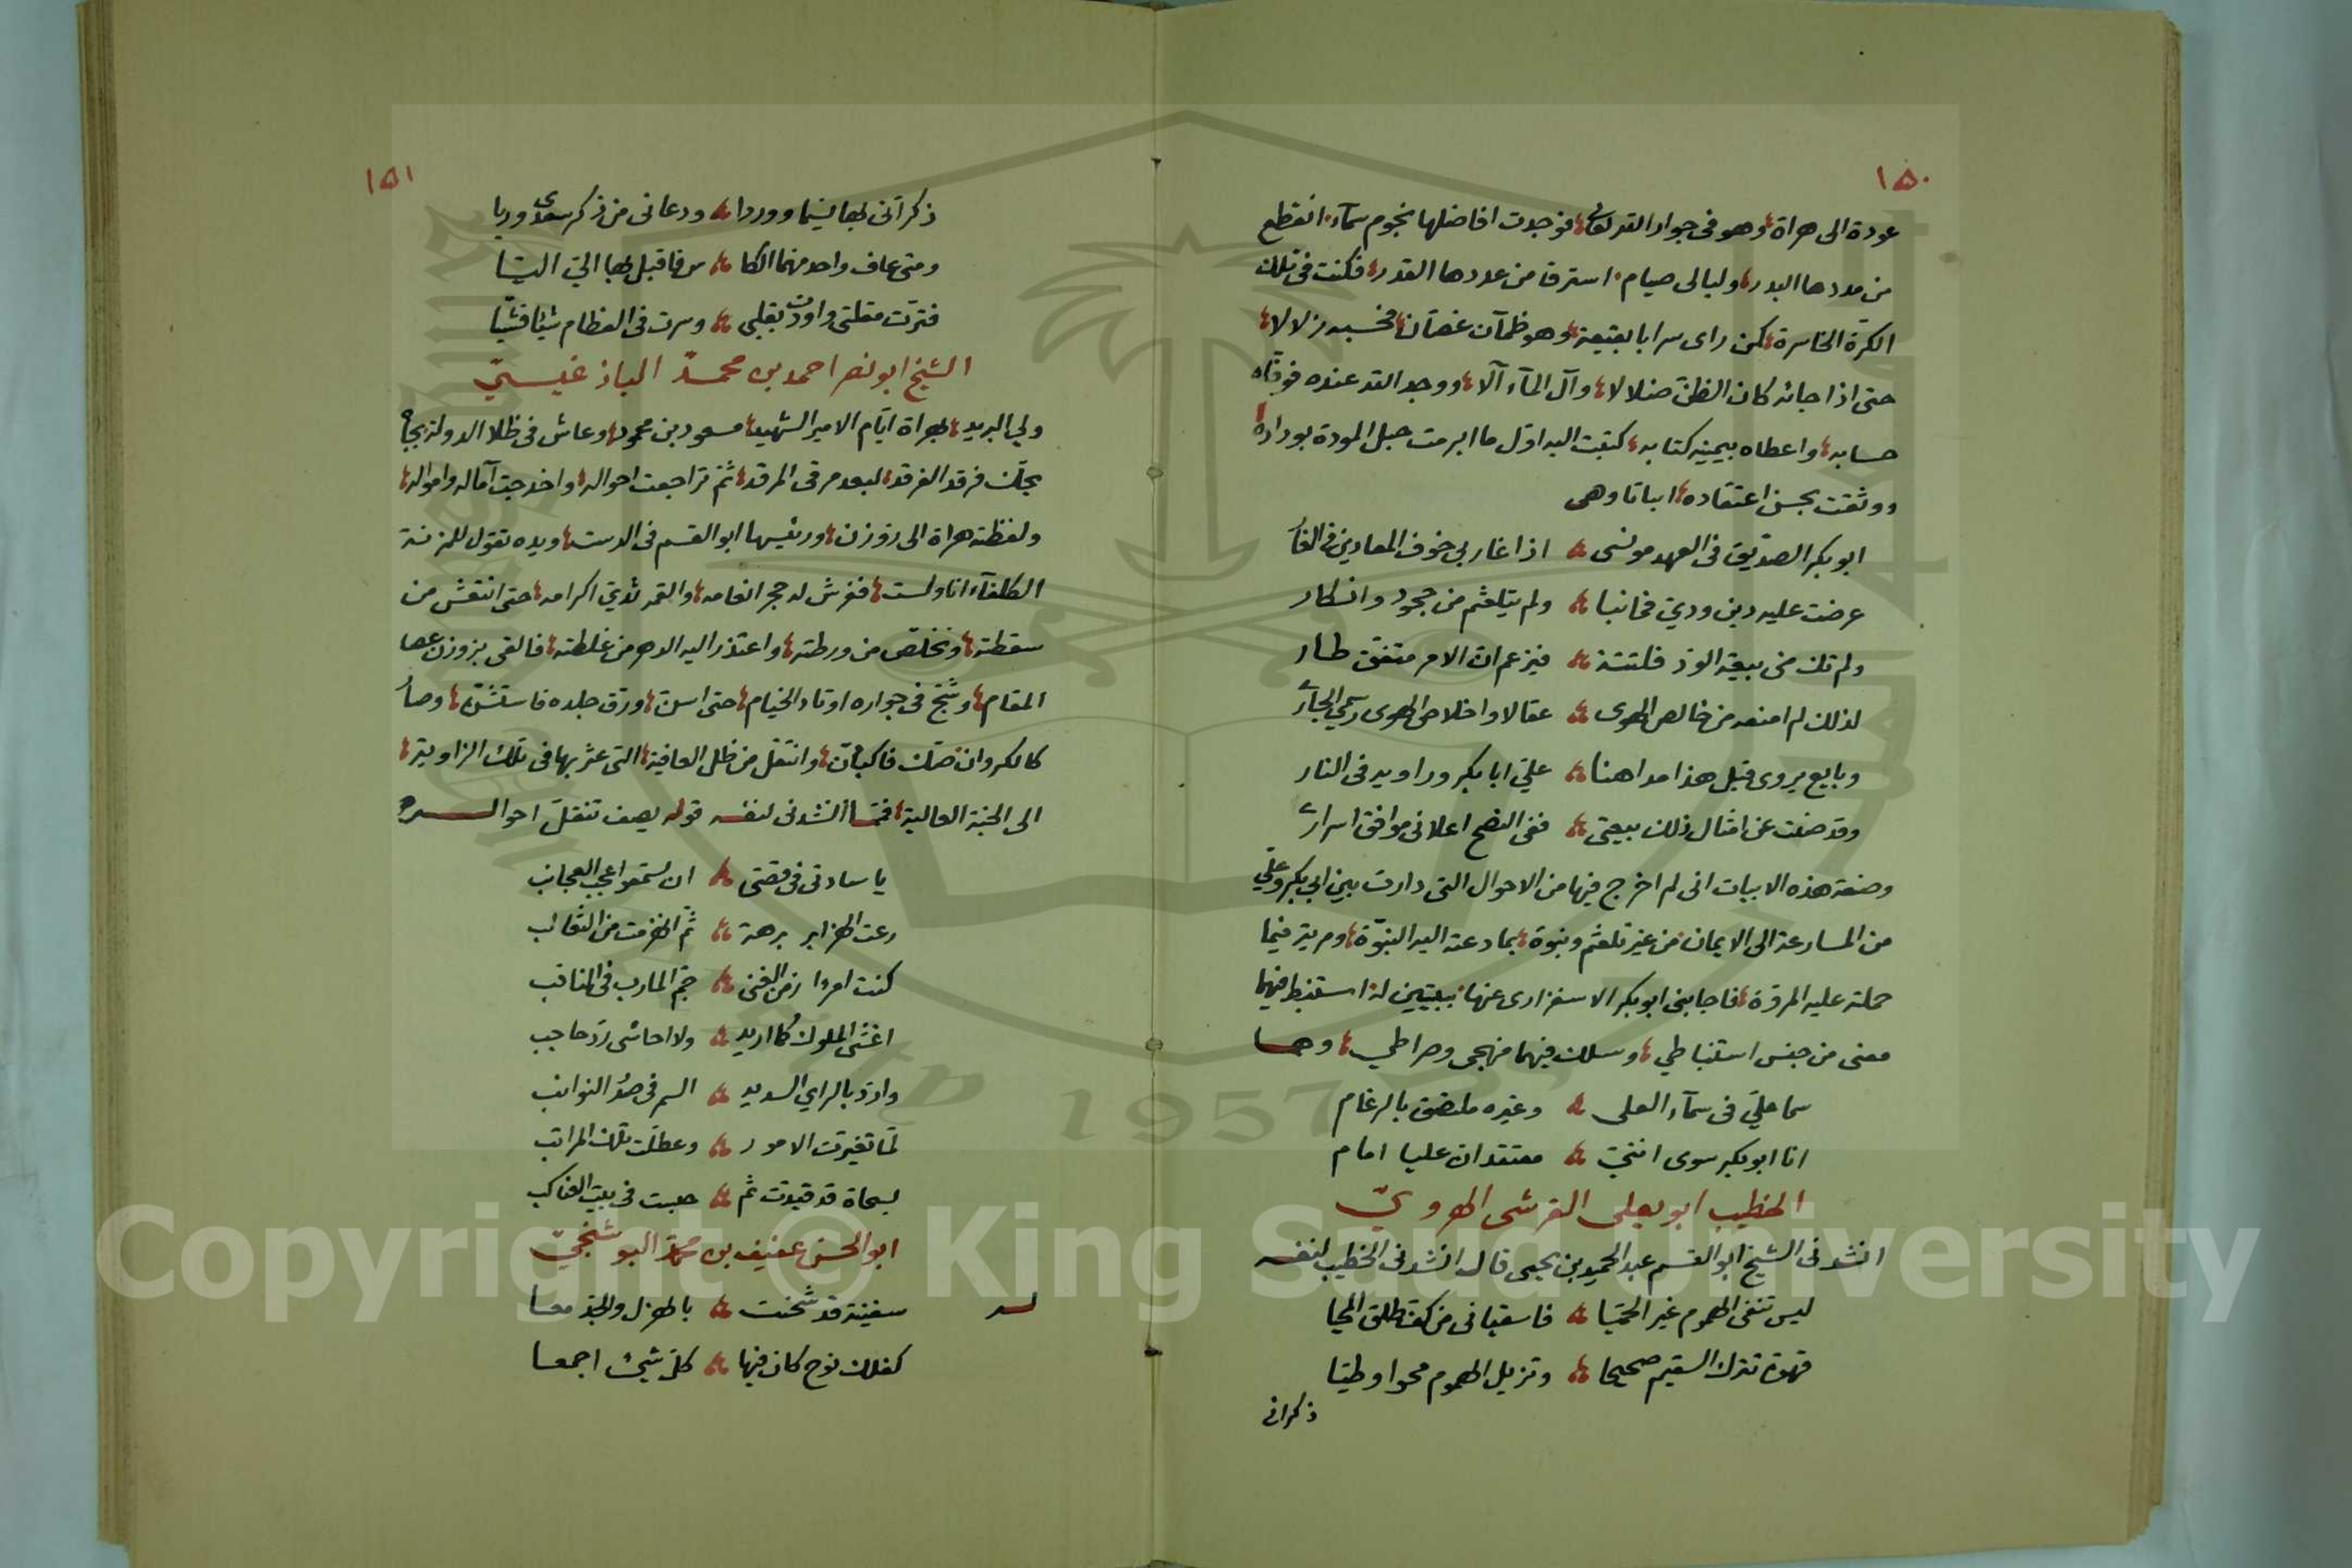 ١٥٠
عودة الى هراة وهو فى جوار الله تعالى فوجدت افاضلها نجوم سمآء انقطع
من مددها البدر وليالى صيام استرق من عددها القدر فكنت فى تلك
الكرّة الخاسرة كمن راى سرابا بقيعة وهو ظمآن غصّان فحسبه زلالا
حتى اذا جائه كان الظنّ ضلالا وآل المآء آلا ووجد الله عنده فوفّاه
حسابه واعطاه بيمينه كتابه كتبت اليه اوّل ما ابرمت حبل المودة بوداده
ووثقت بحسن اعتقاده ابياتا وهى
ابو بكر الصدّيق فى العهد مونسى اذا غار بى خوف المعادين فى الغار
عرضت عليه دين ودّي فمانبا ولم يتلعثم من جحود وانكار
ولم تك منى بيعة الودّ فلتة فيزعم ان الامر متفق طار
لذلك لم امنعه من خالص الهوى عقالا واخلاص الهوى رسمي الجارى
وبايع يروى قبل هذا مداهنا عليّ ابا بكر وراويه فى النار
وقد صنت عن امثال ذلك بيعتى ففى النصح اعلانى موافق اسرارى
وصنعة هذه الابيات انى لم اخرج فيها من الاحوال التى دارت بين ابي بكر وعليّ
من المسارعة الى الايمان من غير تلعثم ونبوة بما دعته اليه النبوّة ومرية فيما
حملته عليه المروّة فاجابنى ابو بكر الاسفزارى عنها ببيتين له استنبط فيهما
معنى من جنس استنباطي وسلك فيهما منهجى وصراطي وهما
سما عليّ فى سمآء العلى وغيره ملصق بالرغام
انا ابو بكر سوى اننيّ معتقد ان عليا امام
الخطيب ابو يعلى القرشى الهرويّ
انشدنى الشيخ ابو القسم عبد الحميد بن يحيى قال انشدنى الخطيب لنفسه
ليس تنفى الهموم غير الحميّا فاسقيانى من كف طلق المحيا
قهوة تترك السقيم صحيحا وتزيل الهموم محوا وطيّا
ذكرانى
١٥١
ذكرانى بها نسيما ووردا ودعانى من ذكر سعدى وريا
ومتى عاف واحد منهما الكا س فاقبل بها اليّ اليّا
فترّت مقلتى واودت بقلبى وسرت فى العظام شيئا فشيّا
الشيخ ابو نصر احمد بن محمّد الباذغيسيّ
ولي البريد بهراة ايّام الامير الشهيد مسعود بن محمود وعاش فى ظلال الدولة بجاه
يجلّ فرقد الفرقد لبعد مرقى المرقد ثم تراجعت احواله واخدجت آماله وامواله
ولفظته هراة الى زوزن ورئيسها ابو القسم فى الدست ويده تقول للمزنة
الكلفآء انا ولست ففرش له حجر انعامه والقمه ثدي اكرامه حتى انتعش من
سقطته وتخلّص من ورطته واعتذر اليه الدهر من غلطته فالقى بزوزن عصا
المقام وشجّ فى جواره اوتاد الخيام حتى اسنّ ورق جلده فاستشنّ وصار
كالكروان صكّ فاكبأنّ وانتقل من ظل العافية التى عثر بها فى تلك الزاوية
الى الجنة العالية فممّا انشدنى لنفسه قوله يصف تنقلّ احواله
يا سادتى فى قصتى ان تسمعوا عجب العجائب
رعت الهزابر برهة ثم انهزمت من الثعالب
كنت امرءا زمن الغنى جمّ المارب فى المناقب
اغشى الملوك كما اريد ولا احاشى ردّ حاجب
واردّ بالراي السديد السم فى صدر النوائب
لمّا تغيرت الامور وعطّلت تلك المراتب
بسحاة قد قيدت ثم حبست فى بيت العناكب
ابو الحسن عفيف بن محمّد البوشنجيّ
له سفينة قد شحنت بالهزل والجدّ معا
كفلك نوح كان فيها كلّ شيئ اجمعا